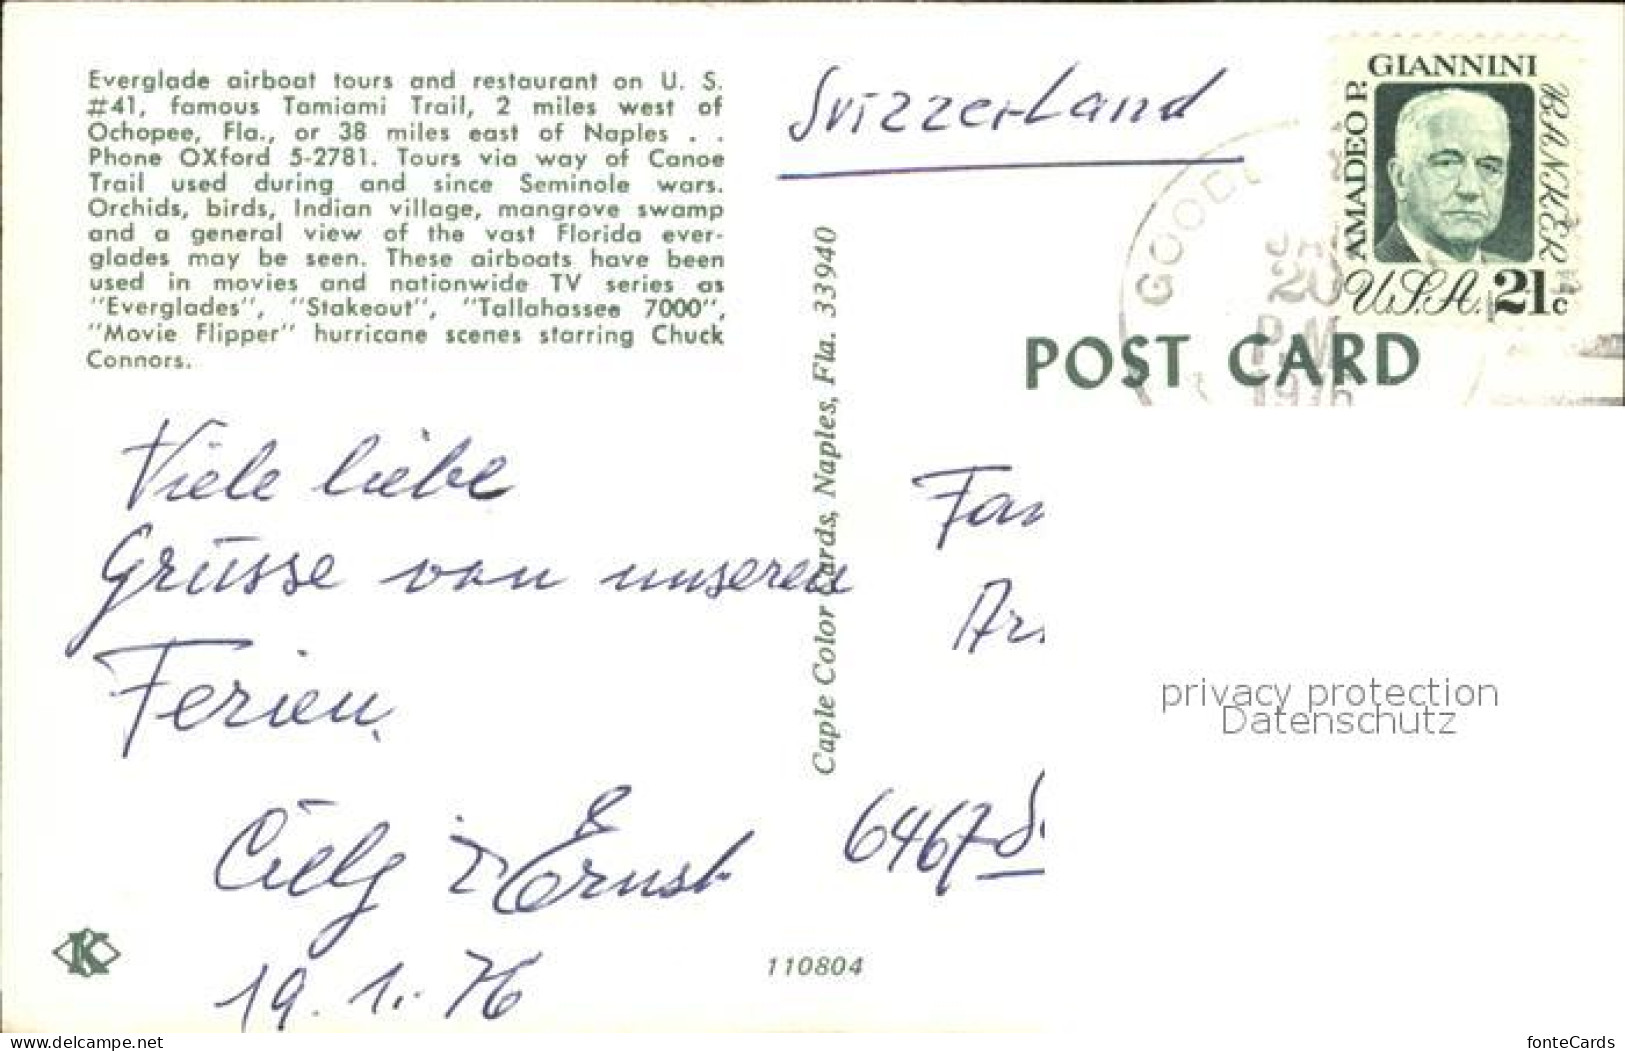 Everglade airboat tours and restaurant on U. S.
#41, famous Tamiami Trail, 2 miles west of
Ochopee, Fla., or 38 miles east of Naples . .
Phone OXford 5-2781. Tours via way of Canoe
Trail used during and since Seminole wars.
Orchids, birds, Indian village, mangrove swamp
and a general view of the vast Florida ever-
glades may be seen. These airboats have been
used in movies and nationwide TV series as
"Everglades", "Stakeout", "Tallahassee 7000",
"Movie Flipper" hurricane scenes starring Chuck
Connors.
Viele liebe
Grüsse von unseren
Ferien.
Ernst
19. 1. 76
K
110804
Caple Color Cards, Naples, Fla. 33940
Svizzerland
AMADEO P.
GIANNINI
BANKER
U.S.A. 21c
20
P.M
1976
POST CARD
6467
privacy protection
Datenschutz
www.delcampe.net
fonteCards